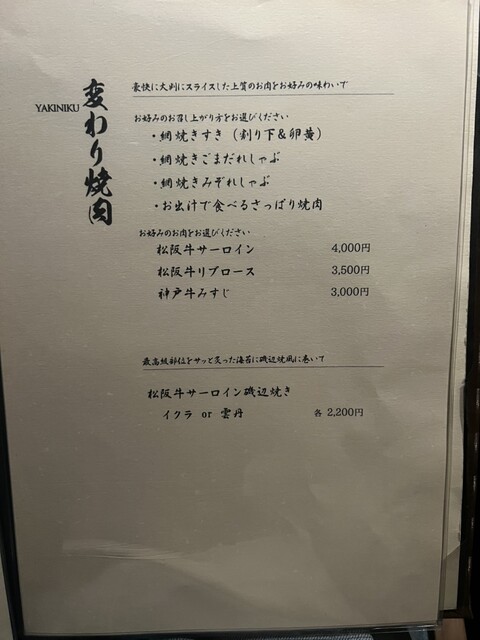 YAKINIKU
変わり焼肉
豪快に大判にスライスした上質のお肉をお好みの味わいで
お好みのお召し上がり方をお選びください
・網焼きすき（割り下＆卵黄）
・網焼きごまだれしゃぶ
・網焼きみぞれしゃぶ
・お出汁で食べるさっぱり焼肉
お好みのお肉をお選びください
松阪牛サーロイン 4,000円
松阪牛リブロース 3,500円
神戸牛みすじ 3,000円
最高級部位をサッと炙った海苔に磯辺焼風に巻いて
松阪牛サーロイン磯辺焼き
イクラ or 雲丹 各 2,200円